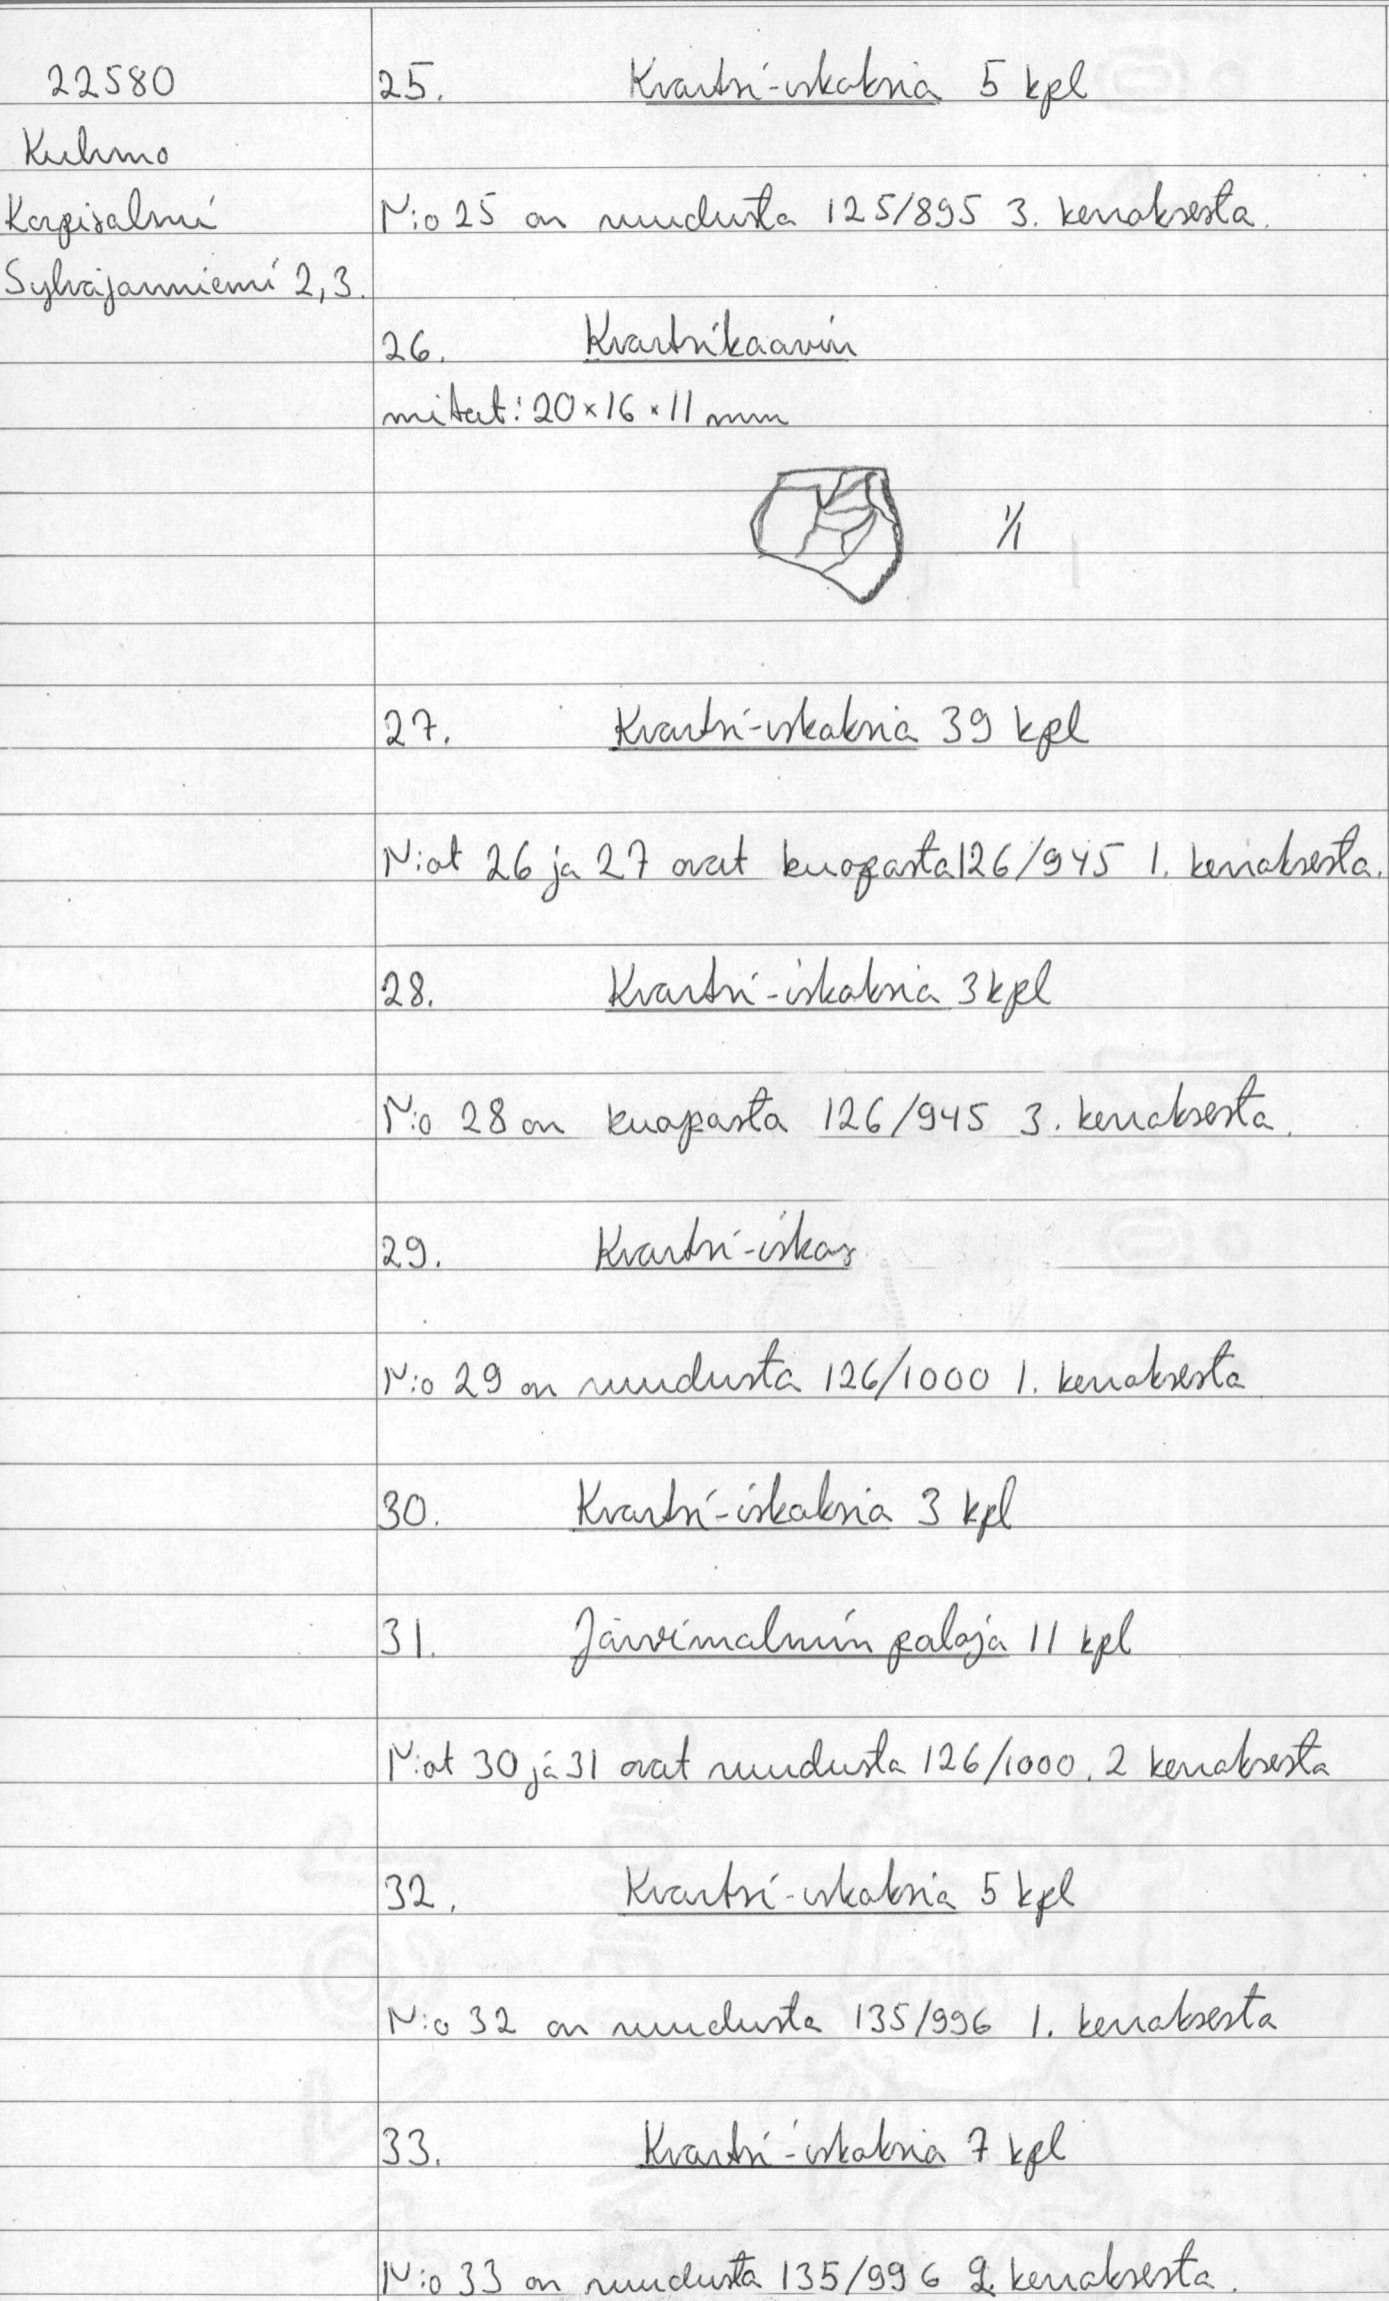 22580
Kuhmo
Korpisalmi
Sylväjänniemi 2,3.
25. Kvartsi-iskoksia 5 kpl
N:o 25 on ruudusta 125/895 3. kerroksesta.
26. Kvartsikaavin
mitat: 20×16×11 mm
1/1
27. Kvartsi-iskoksia 39 kpl
N:ot 26 ja 27 ovat kuopasta 126/945 1. kerroksesta.
28. Kvartsi-iskoksia 3 kpl
N:o 28 on kuopasta 126/945 3. kerroksesta.
29. Kvartsi-iskos
N:o 29 on ruudusta 126/1000 1. kerroksesta
30. Kvartsi-iskoksia 3 kpl
31. Järvimalmin paloja 11 kpl
N:ot 30 ja 31 ovat ruudusta 126/1000. 2 kerroksesta
32. Kvartsi-iskoksia 5 kpl
N:o 32 on ruudusta 135/996 1. kerroksesta
33. Kvartsi-iskoksia 7 kpl
N:o 33 on ruudusta 135/996 2. kerroksesta.